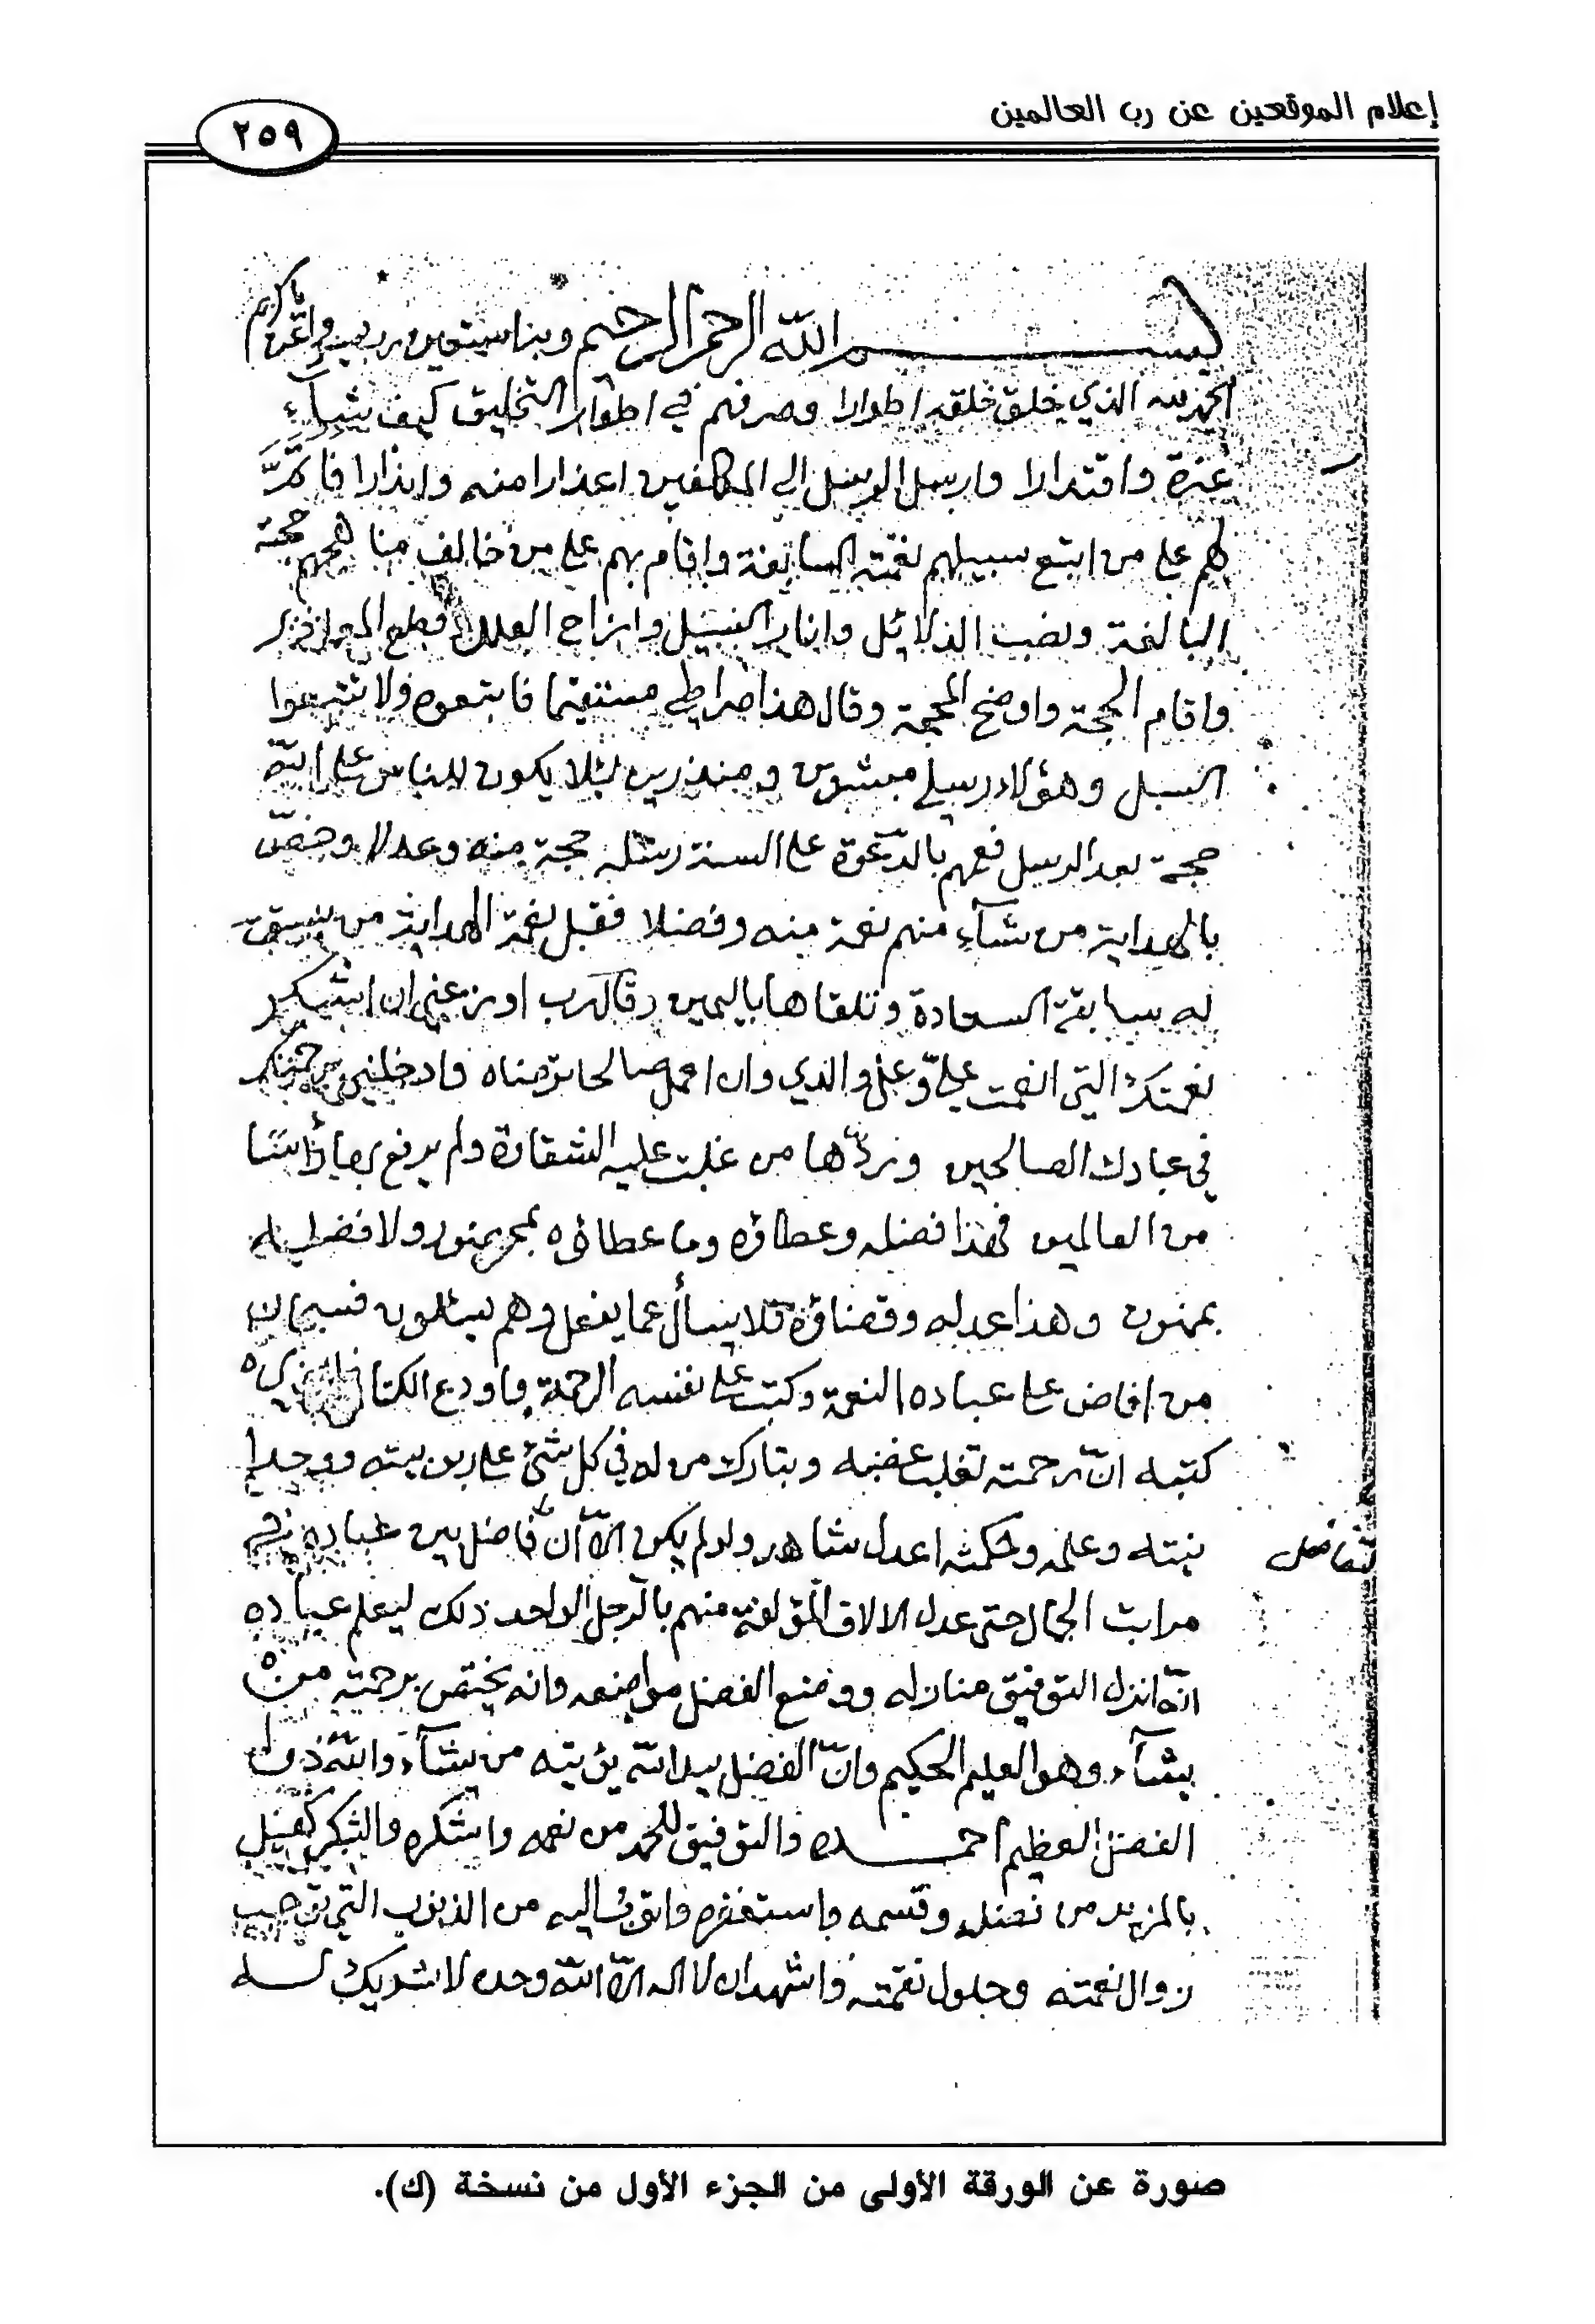 إعلام الموقعين عن رب العالمين
٢٥٩
بسم الله الرحمن الرحيم وبنا نستعين رب يسر واعن يا كريم
الحمد لله الذي خلق خلقه اطوارا وصرفهم في اطوار التخليق كيف شآء
عزة واقتدارا وارسل الرسل الى المكلفين اعذارا منه وانذارا فاتمَّ
لهم على من اتبع سبيلهم نعمته السابغة واقام بهم على من خالف مناهجهم حجته
البالغة ونصب الدلائل وانار السبيل وازاح العلل وقطع المعاذير
واقام الحجة واوضح المحجة وقال هذا صراطي مستقيما فاتبعوه ولا تتبعوا
السبل وهؤلاء رسلي مبشرين ومنذرين لئلا يكون للناس على الله
حجة بعد الرسل فعمهم بالدعوة على السنة رسله حجة منه وعدلا وخصّ
بالهداية من شآء منهم نعمة منه وفضلا فقبل نعمة الهداية من سبقت
له سابقة السعادة وتلقاها باليمين وقال رب اوزعني ان اشكر
نعمتك التي انعمت عليّ وعلى والدي وان اعمل صالحا ترضاه وادخلني برحمتك
في عبادك الصالحين وردّها من غلبت عليه الشقاوة ولم يرفع بها رأسا
من العالمين فهذا فضله وعطاؤه وما عطاؤه بمحظور ولا فضله
بممنون وهذا عدله وقضاؤه فلا يسأل عما يفعل وهم يسئلون فسبحان
من افاض على عباده النعمة وكتب على نفسه الرحمة واودع الكتاب الذي
كتبه انّ رحمته تغلب غضبه وتبارك من له في كل شئ على ربوبيته ووحدا
نيته وعلمه وحكمته اعدل شاهد ولو لم يكن الاّ أن فاضل بين عباده في
تفاضل
مراتب الكمال حتى عدل الالاف المؤلفة منهم بالرجل الواحد ذلك ليعلم عباده
انّه انزل التوفيق منازله ووضع الفضل مواضعه وانه يختص برحمته من
يشآء وهو العليم الحكيم وانّ الفضل بيد الله يؤتيه من يشآء والله ذو
الفضل العظيم احمده والتوفيق للحمد من نعمه واشكره والشكر كفيل
بالمزيد من فضله وقسمه واستغفره واتوب اليه من الذنوب التي توجب
زوال نعمته وحلول نقمته واشهد ان لا اله الاّ الله وحده لا شريك له
صورة عن الورقة الأولى من الجزء الأول من نسخة (ك).